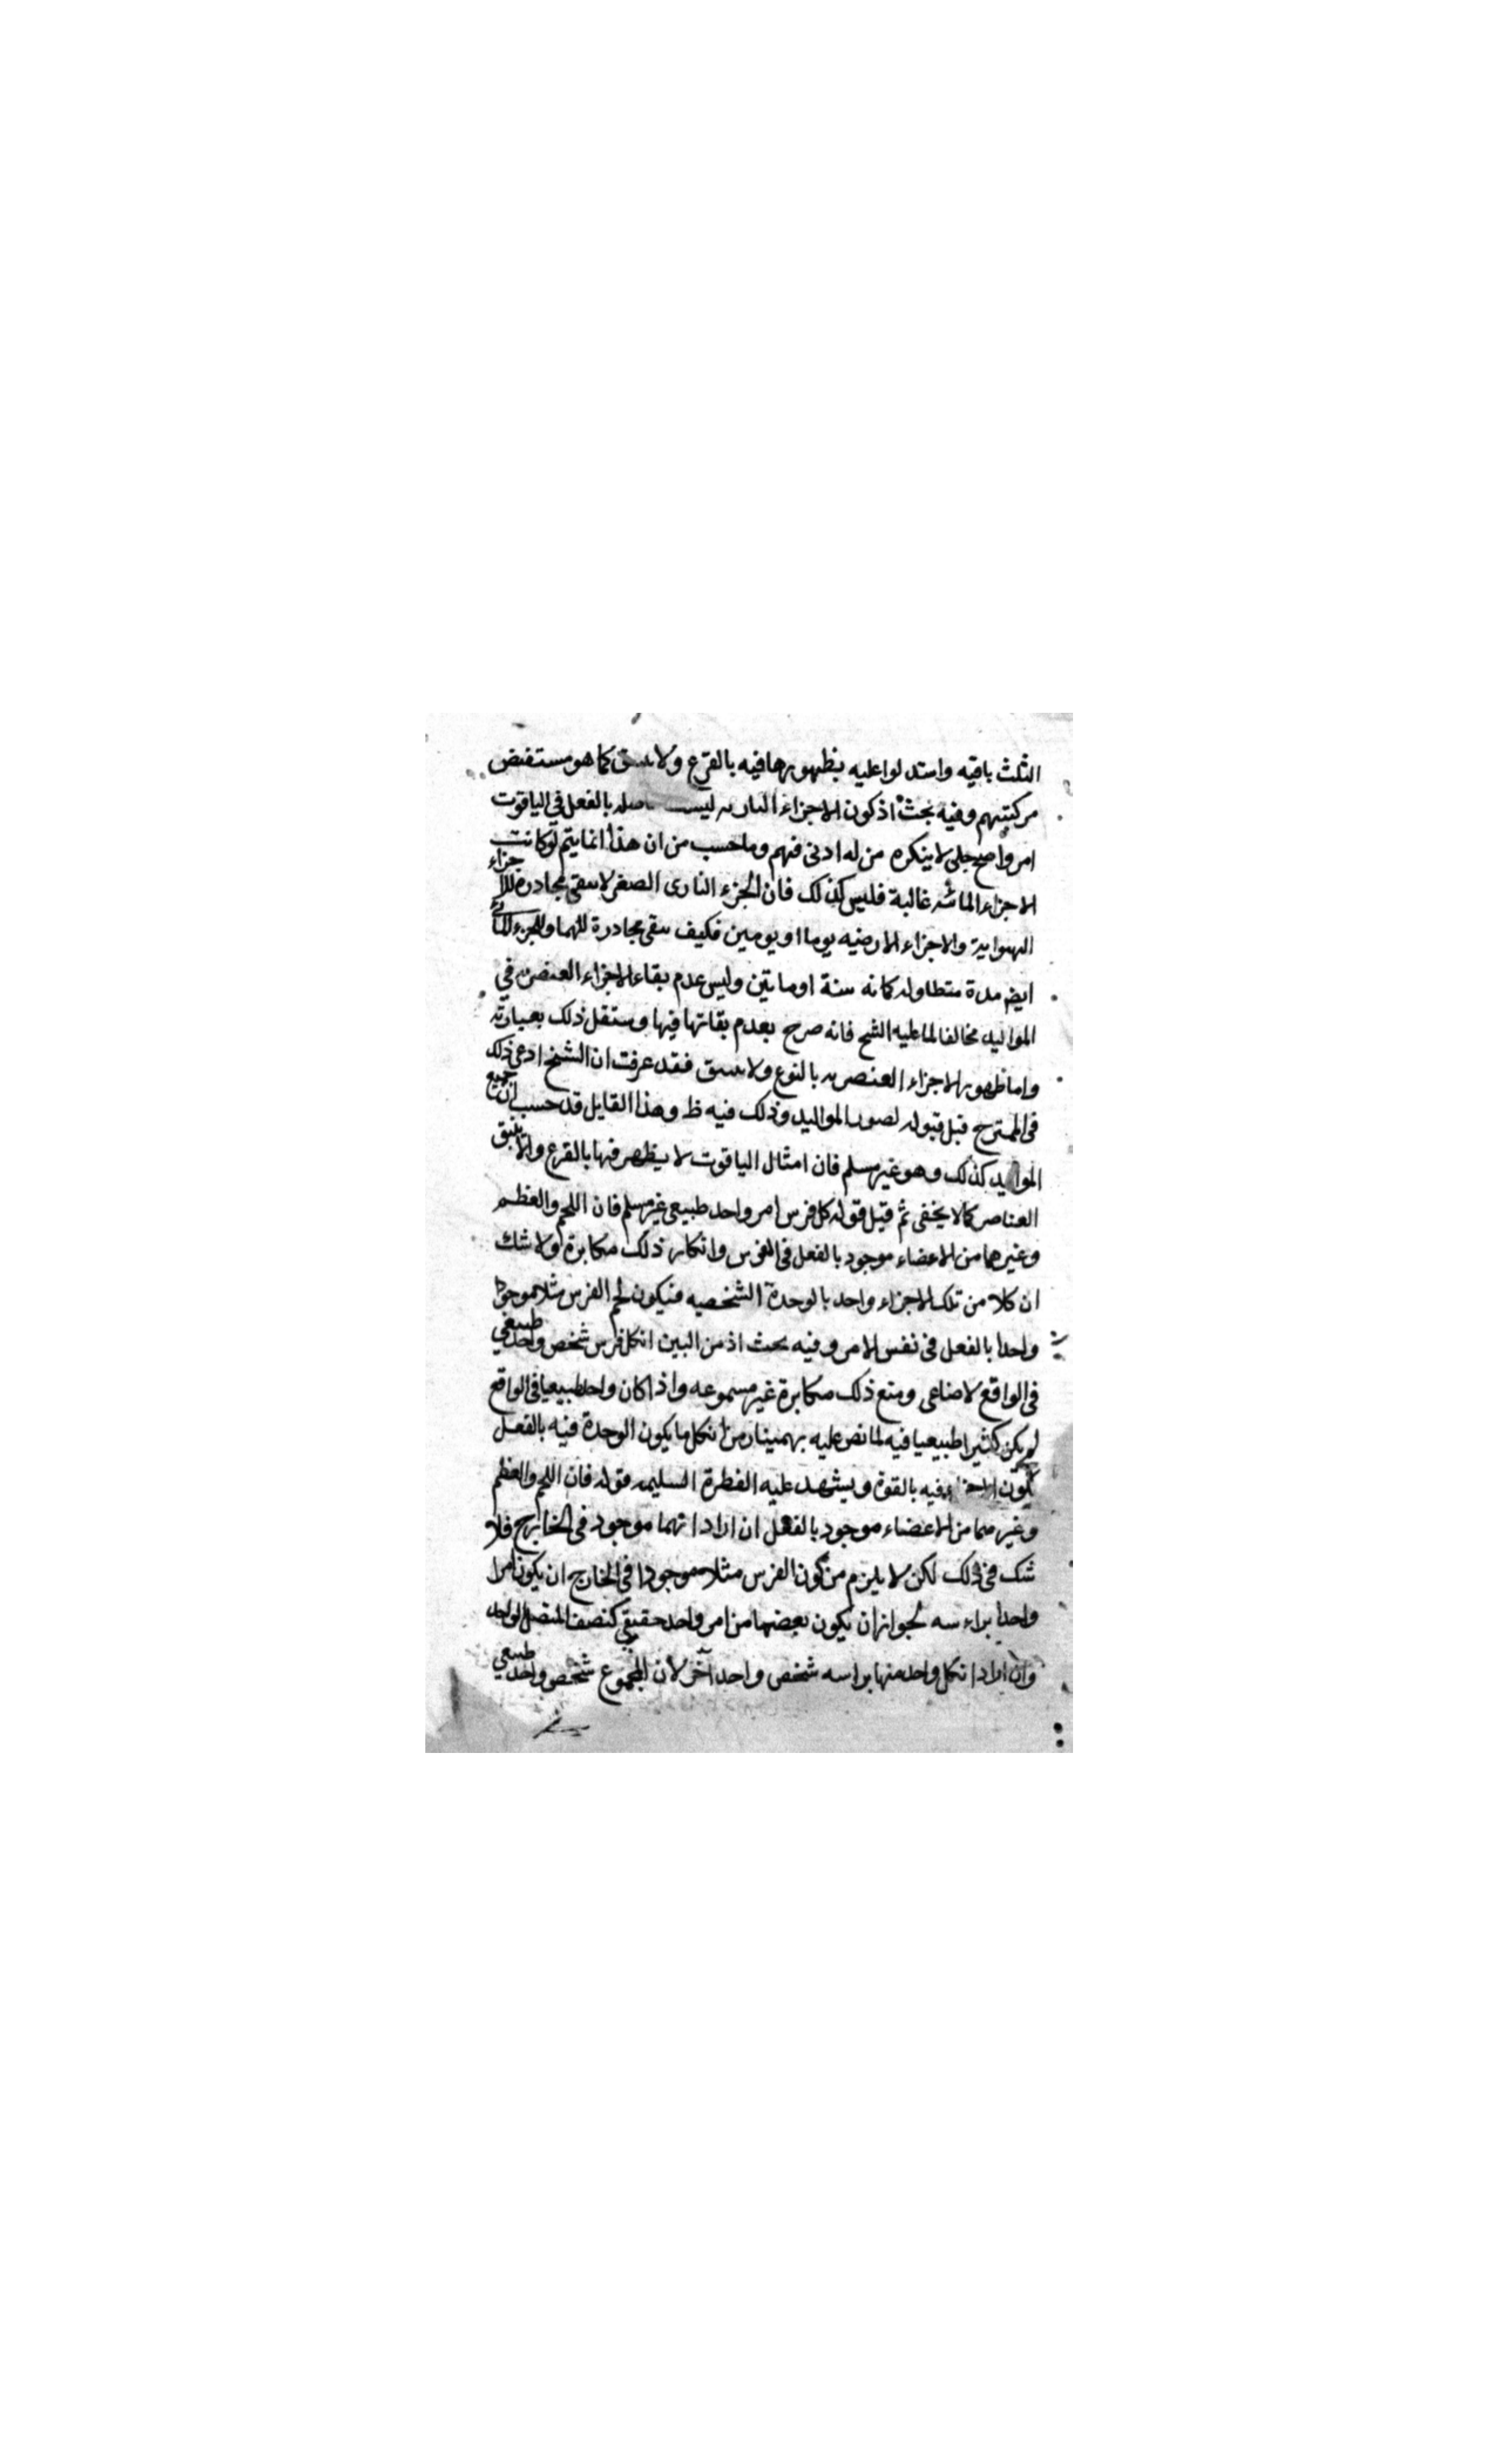 الثلث باقيه واستدلوا عليه بظهورها فيه بالقرع ولانبيق كما هو مستفيض
من كتبهم وفيه بحث اذ كون الاجزاء الناريه ليست حاصله بالفعل في الياقوت
امر واضح جلي لا ينكره من له ادنى فهم وما حسب من ان هذا انما يتم لو كانت
الاجزاء المائيه غالبة فليس كذلك فان الجزء الناري الصغير لا يبقى مجاورة للاجزاء
الهوايية والاجزاء الارضيه يوما او يومين فكيف يبقى مجاورة لهما وللجزء المائي
ايضم مدة متطاوله كمائه سنة او مايتين وليس عدم بقاء الاجزاء العنصريه في
المواليد مخالفا لما عليه الشيخ فانه صرح بعدم بقائها فيها وسننقل ذلك بعبارته
واما ظهور الاجزاء العنصريه بالنوع ولانبيق فقد عرفت ان الشيخ ادعى ذلك
في الممتزج قبل قبوله لصور المواليد وذلك فيه ظ وهذا القايل قد حسب ان جميع
المواليد كذلك وهو غير مسلم فان امثال الياقوت لا يظهر فيها بالقرع والانبيق
العناصر كما لا يخفى ثم قيل قوله كل فرس امر واحد طبيعي غير مسلم فان اللحم والعظم
وغيرهما من الاعضاء موجود بالفعل في الفرس وانكار ذلك مكابرة ولا شك
ان كلا من تلك الاجزاء واحد بالوحدة الشخصيه فيكون لحم الفرس مثلا موجودا
واحدا بالفعل في نفس الامر وفيه بحث اذ من البين ان كل فرس شخص واحد طبيعي
في الواقع لا صناعي ومنع ذلك مكابرة غير مسموعه واذا كان واحدا طبيعيا في الواقع
لم يكن كثيرا طبيعيا فيه لما نص عليه بهمنيار من ان كل ما يكون الوحدة فيه بالفعل
يكون الاجزاء فيه بالقوة ويشهد عليه الفطرة السليمه قوله فان اللحم والعظم
وغيرهما من الاعضاء موجود بالفعل ان اراد انهما موجود في الخارج فلا
شك في ذلك لكن لا يلزم من كون الفرس مثلا موجودا في الخارج ان يكون امرا
واحدا براءسه لجواز ان يكون بعضها من امر واحد حقيقي كنصف المتصل الواحد
وان اراد ان كل واحد منها براسه شخص واحد آخر لان المجموع شخص واحد طبيعي